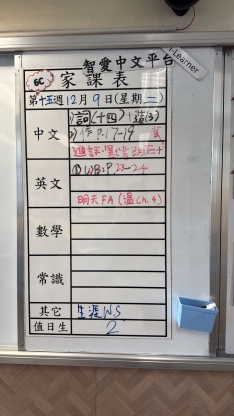 智愛中文平台
i-Learner
6C 家課表
第十五週12月9日(星期二)
中文
詞(十四)
P.17-19
英文
P.23-24
明天FA(溫Ch.4)
數學
常識
其它 生涯W.S
值日生 2